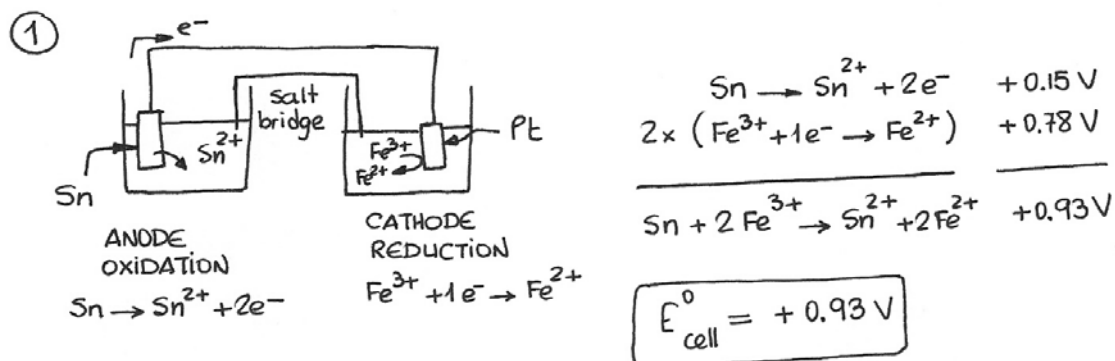 1
e⁻
salt
bridge
Sn²⁺
Sn
Fe³⁺
Fe²⁺
Pt
ANODE
OXIDATION
Sn → Sn²⁺ + 2e⁻
CATHODE
REDUCTION
Fe³⁺ + 1e⁻ → Fe²⁺
Sn → Sn²⁺ + 2e⁻ +0.15 V
2x (Fe³⁺ + 1e⁻ → Fe²⁺) +0.78 V
Sn + 2 Fe³⁺ → Sn²⁺ + 2Fe²⁺ +0.93 V
E⁰cell = + 0.93 V